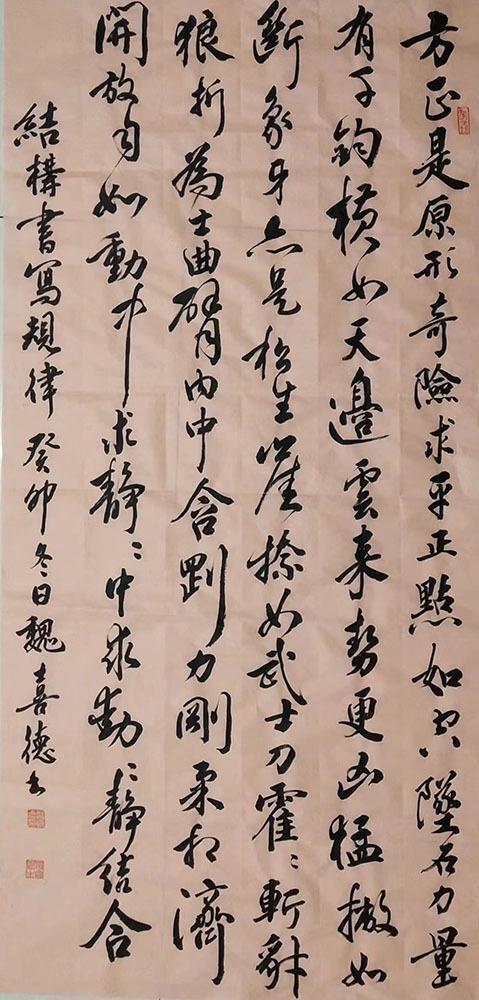 方正是原形奇險求平正點如空墜石力量
有千鈞橫如天邊雲来勢更凶猛撇如
斷象牙亦是松生崖捺如武士刀霍〻斬豺
狼折為士曲臂内中含剛力剛柔相濟
開放自如動中求静〻中求動〻静結合
結構書寫規律癸卯冬日魏喜德书